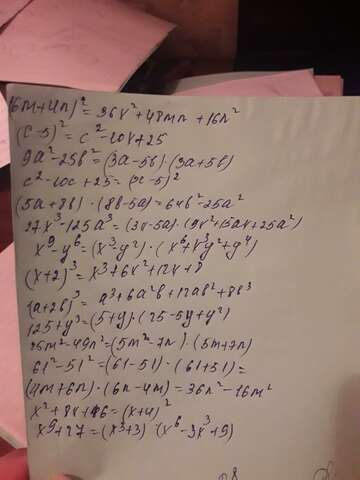 (6m+4n)² = 36x²+48mn+16n²
(c-5)² = c²-10x+25
9a²-25b² = (3a-5b)·(3a+5b)
c²-10c+25 = (x-5)²
(5a+8b)·(8b-5a) = 64b²-25a²
27x³-125a³ = (3x-5a)·(9x²+15ax+25a²)
x⁹-y⁶ = (x³-y²)·(x⁶+x³y²+y⁴)
(x+2)³ = x³+6x²+12x+8
(a+2b)³ = a³+6a²b+12ab²+8b³
125+y³ = (5+y)·(25-5y+y²)
25m²-49n² = (5m-7n)·(5m+7n)
61²-51² = (61-51)·(61+51)=
(4m+6n)·(6n-4m) = 36n²-16m²
x²+8x+16 = (x+4)²
x⁹+27 = (x³+3)·(x⁶-3x³+9)